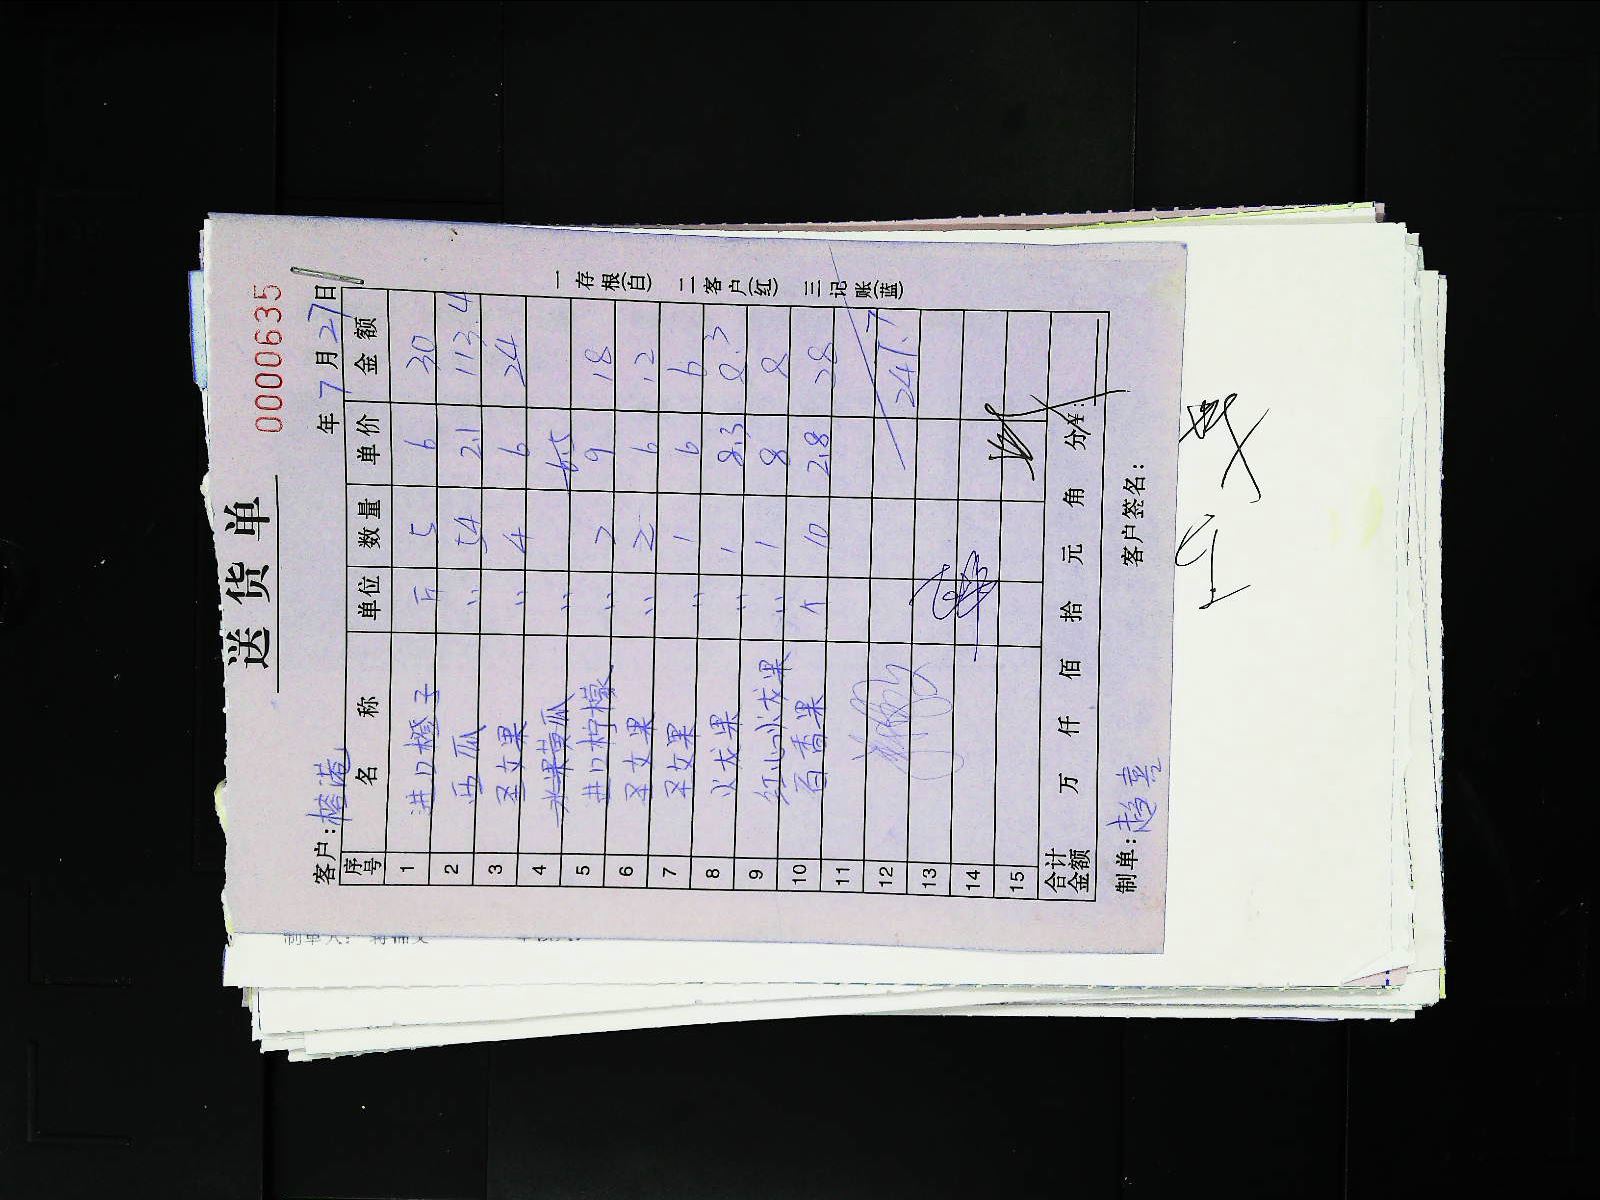 送货单
0000635
客户: 年7月27日
序号 名称 单位 数量 单价 金额
1 进口橙子 斤 5 6 30
2 西瓜 〃 54 2.1 113.4
3 圣女果 〃 4 6 24
4 水果黄瓜 〃 6.5
5 进口柠檬 〃 2 9 18
6 圣女果 〃 2 6 12
7 圣女果 〃 1 6 6
8 火龙果 〃 1 8.3 8.3
9 红心火龙果 〃 1 8 8
10 百香果 个 10 2.8 28
11
12 241.7
13
14
15
合计金额 万 仟 佰 拾 元 角 分 ¥:
制单: 客户签名:
一存根(白) 二客户(红) 三记账(蓝)
制单人: